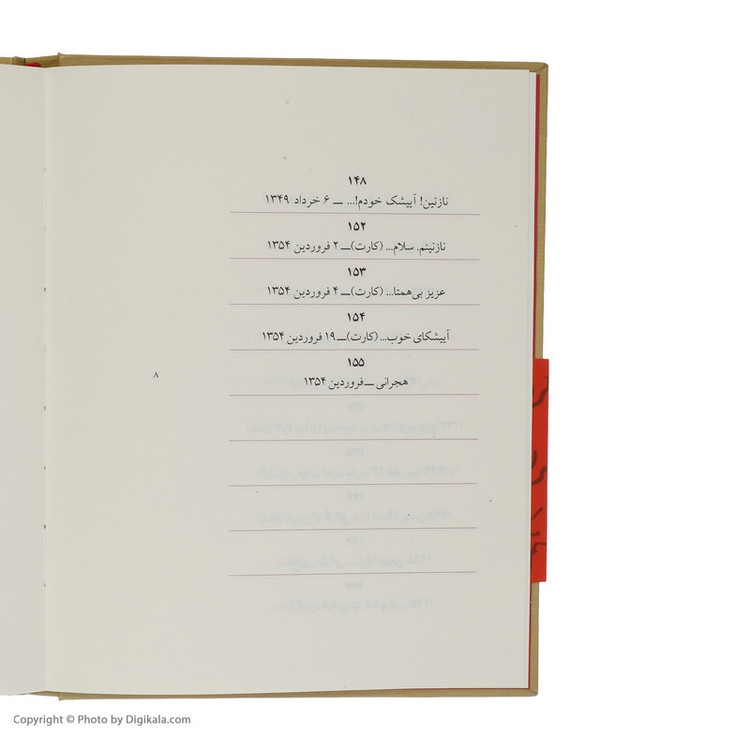 ۱۴۸
نازنین! آییشک خودم!... ــ ۶ خرداد ۱۳۴۹
۱۵۲
نازنینم. سلام... (کارت)ــ ۲ فروردین ۱۳۵۴
۱۵۳
عزیز بی‌همتا... (کارت)ــ ۴ فروردین ۱۳۵۴
۱۵۴
آییشکای خوب... (کارت)ــ ۱۹ فروردین ۱۳۵۴
۱۵۵
هجرانی ــ فروردین ۱۳۵۴
۸
Copyright © Photo by Digikala.com